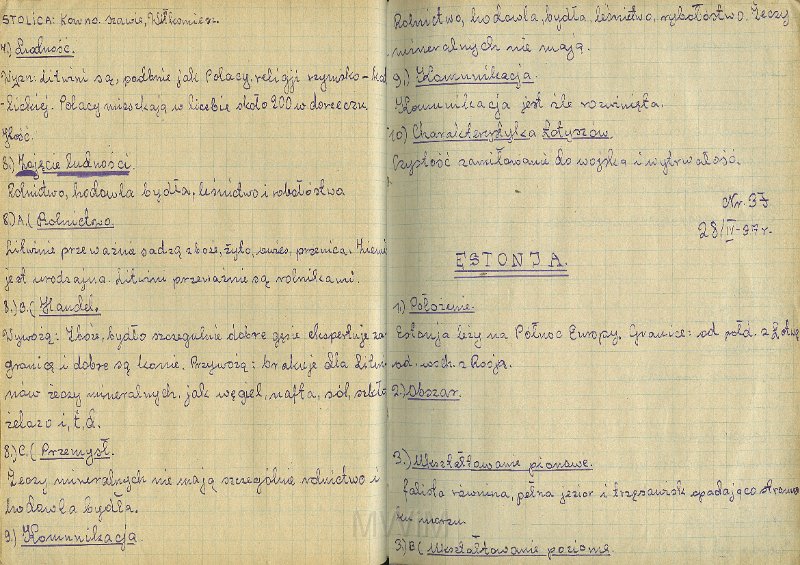 STOLICA: Kowno. szawle, Wiłkomierz.
7.) Ludność.
Wyzn: Litwini są, podobnie jak Polacy, religji rzymsko-kato
-lickiej. Polacy mieszkają w liczbie około 200 w dorzeczu
8.) Zajęcie ludności.
Rolnictwo, hodowla bydła, leśnictwo i robołóstwo
8.) A.( Rolnictwo
Litwinie przeważnie sadzą zboże, żyto, owies, przenica.
jest urodzajna. Litwini przeważnie są rolnikami.
8.) B.( Handel.
Wywożą: Zboże, bydło szczegulnie dobre gęsie eksportuje za
granicą i dobre są konie. Przywożą: brakuje dla Litwi-
nów rzeczy mineralnych, jak węgiel, nafta, sól, szkło
żelazo i, t, d.
8.) C.( Przemysł.
Rzeczy mineralnych nie mają szczególnie rolnictwo i
hodowla bydła.
9.) Komunikacja
Rolnictwo, hodowla, bydła, leśnictwo, rybołóstwo. Rzeczy
mineralnych nie mają.
9.) Komunikacja.
Komunikacja jest źle rozwinięta.
10) Charakterystyka Łotyszów.
Czystość zamiłowanie do wojska i wytrwałość.
Nr. 37
28/IV-37r.
ESTONJA.
1.) Położenie.
Estonja leży na Północ Europy. Granice: od połd. z Łotwą
od. wsch. z Rosja.
2.) Obszar.
3.) Ukształtowanie pionowe.
falista równena, pełna jezior i trzęsawisk opadająca stromo
ku morzu.
3.) B( Ukształtowanie poziome
MWiM